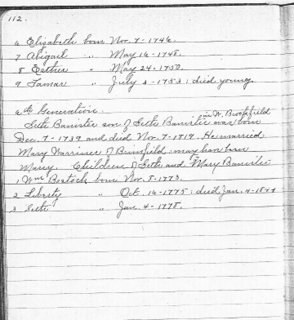 112.
6 Elizabeth born Nov. 9-1746
7 Abigail " May 16-1748.
8 Esther " May 24-1750.
9 Tamar " July 2-1753; died young
6th Generation.
Seth Banister son of Seth Banister was born in W. Brookfield
Dec. 9-1739 and died Nov. 9-1819. He married
Mary Warriner of Brimfield; may have been
Mercy. Children of Seth and Mary Banister
1 Wm Bostock born Nov. 8-1773.
2 Liberty Oct. 16-1775; died Jan. 9-1844
3 Seth " Jan. 4-1778.